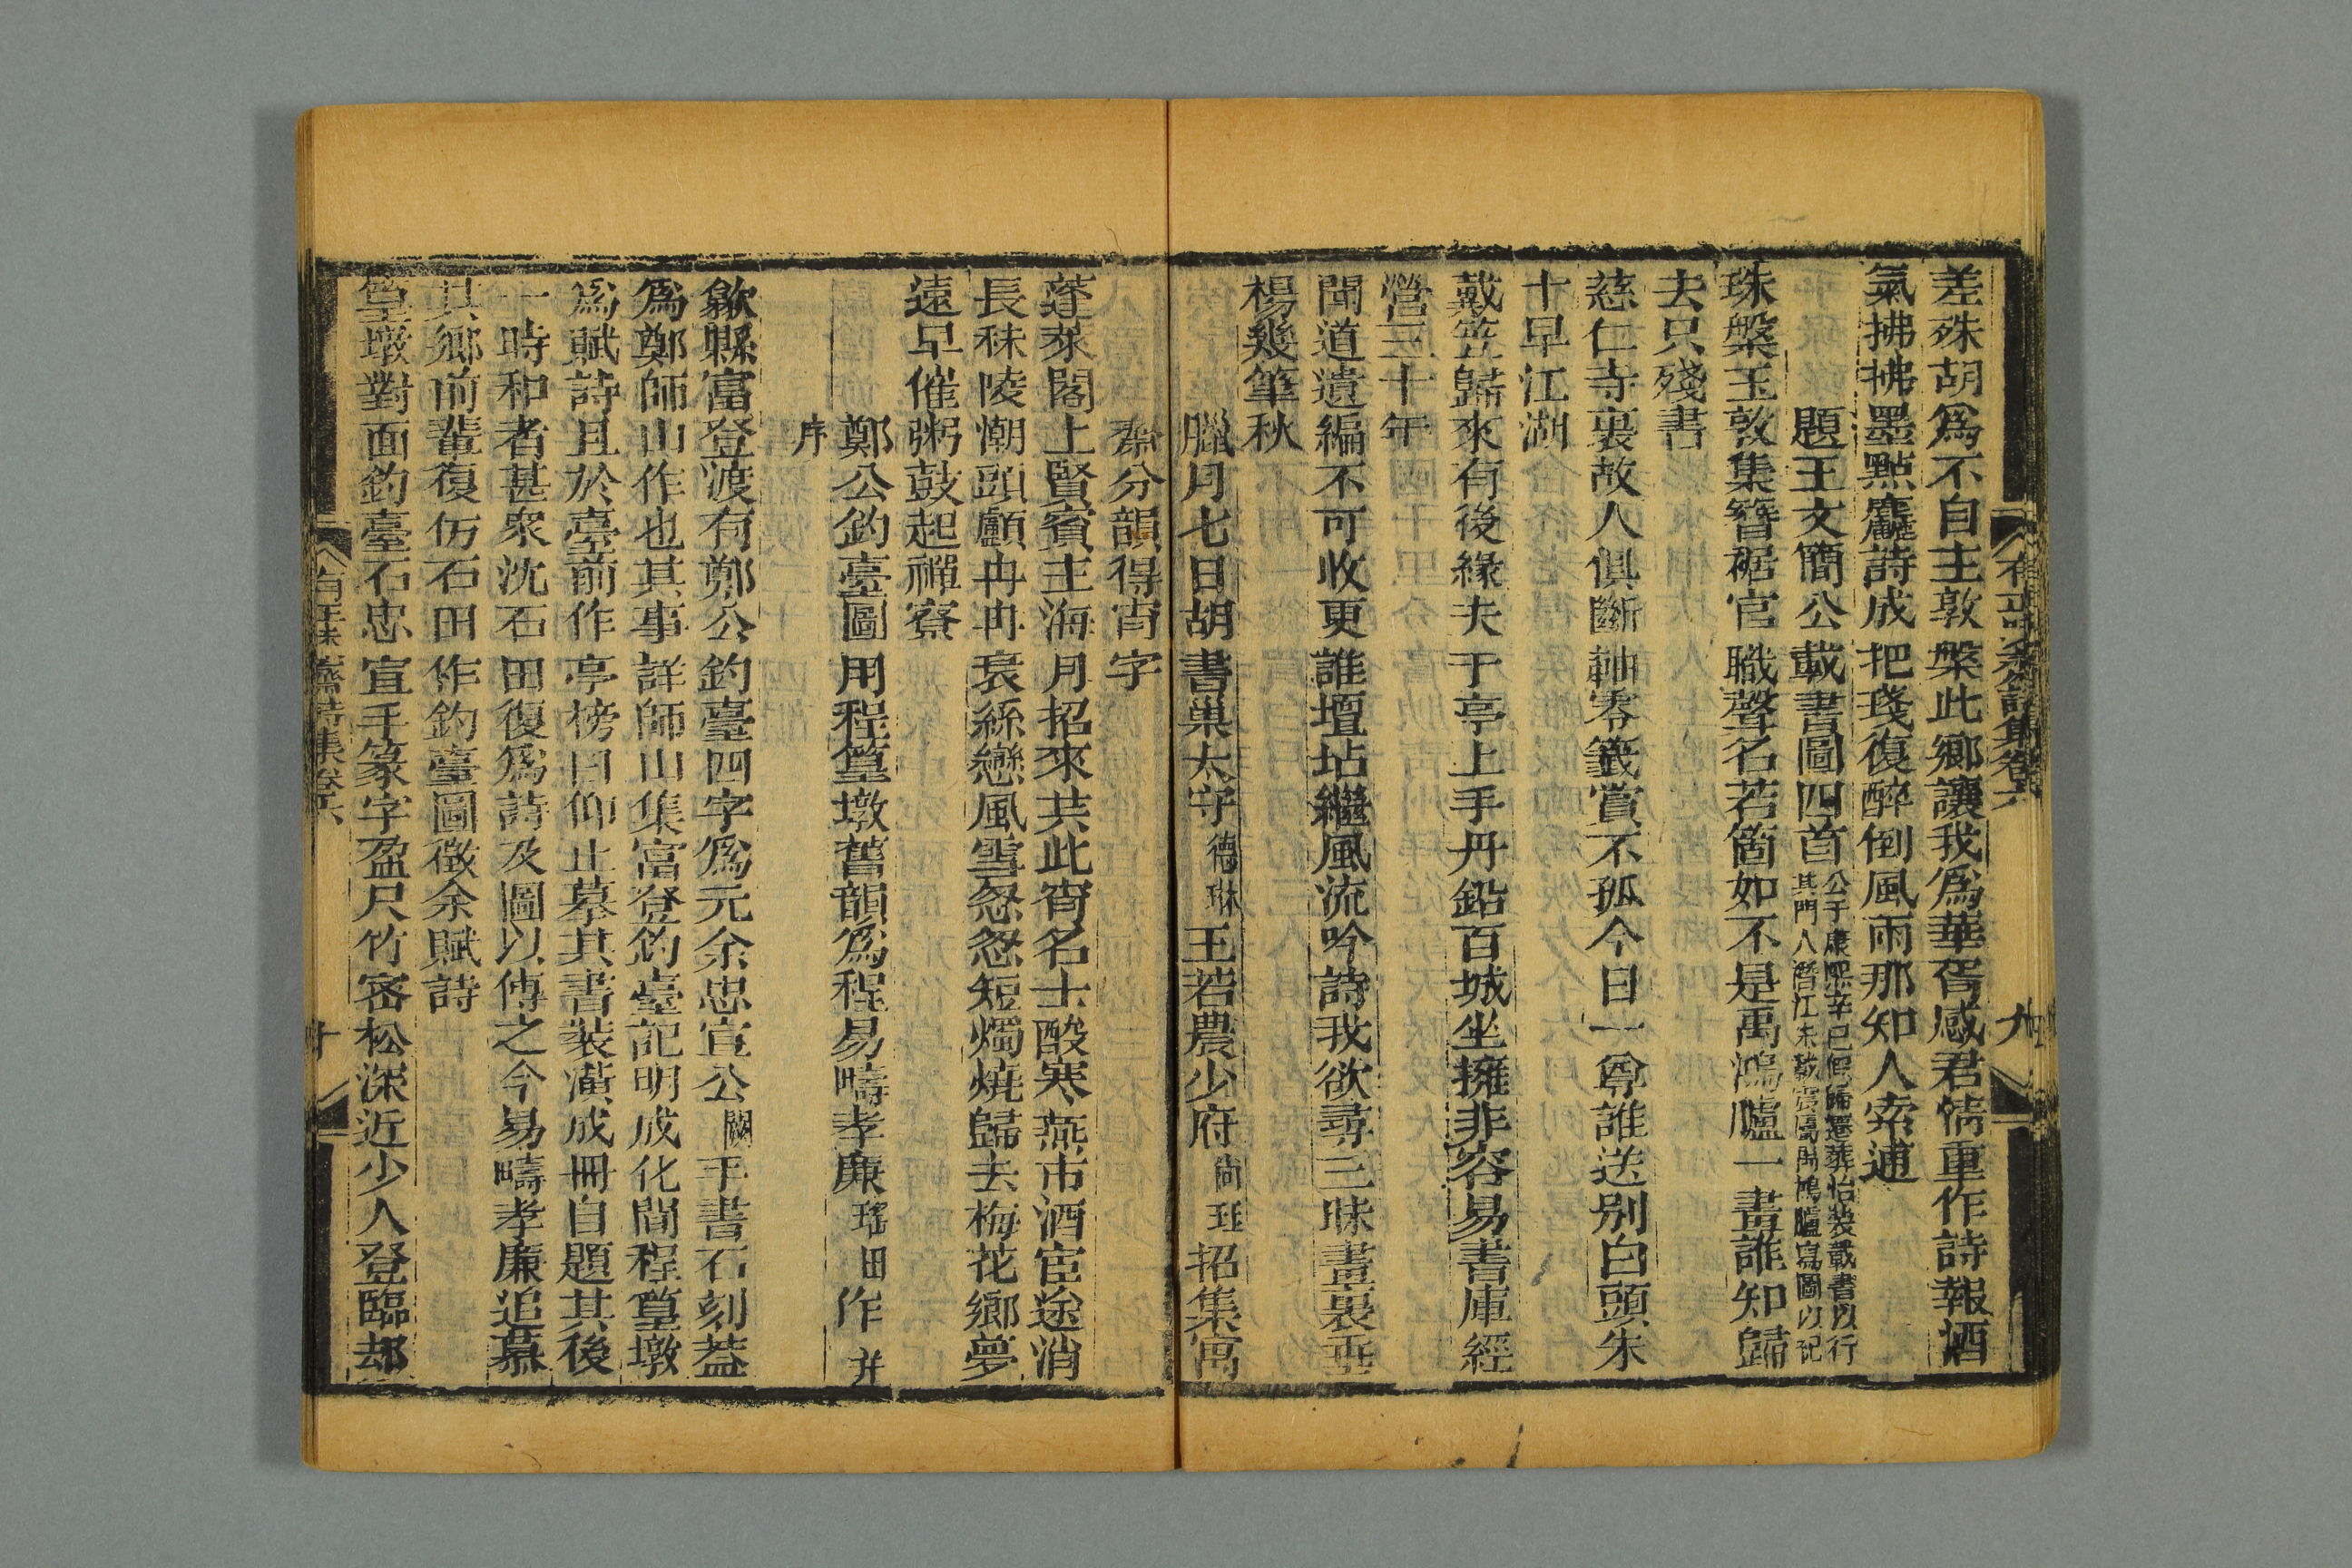 差殊胡爲不自主敦槃此鄉讓我爲華胥感君情重作詩報酒
氣拂拂墨點麤詩成把琖復醉倒風雨那知人索逋
題王文簡公載書圖四首
公于康熙辛巳假歸遷葬怡裝載書以行
其門人潛江朱載震屬禹鴻臚寫圖以記
珠槃玉敦集簪裾官職聲名若箇如不是禹鴻臚一畫誰知歸
去只殘書
慈仁寺裏故人俱斷軸零籤賞不孤今日一尊誰送别白頭朱
十早江湖
戴笠歸來有後緣夫于亭上手丹鉛百城坐擁非容易書庫經
營三十年
聞道遺編不可收更誰壇坫繼風流吟詩我欲尋三昧畫裏垂
楊幾筆秋
臘月七日胡書巢太守德琳王若農少府尚珏招集寓
齋分韻得宵字
蓬萊閣上賢賓主海月招來共此宵名士酸寒燕市酒宦途消
長秣陵潮頭顱冉冉衰絲戀風雪怱怱短燭燒歸去梅花鄉夢
遠早催粥鼓起禪寮
鄭公釣臺圖用程篁墩舊韻爲程易疇孝廉瑤田作并
序
歙縣富登渡有鄭公釣臺四字爲元余忠宣公闕手書石刻葢
爲鄭師山作也其事詳師山集富登釣臺記明成化間程篁墩
爲賦詩且於臺前作亭榜曰仰止摹其書裝潢成冊自題其後
一時和者甚衆沈石田復爲詩及圖以傳之今易疇孝廉追慕
其鄉前輩復仿石田作釣臺圖徵余賦詩
篁墩對面釣臺石忠宣手篆字盈尺竹密松深近少人登臨却
卷六
九
詩集卷六
十